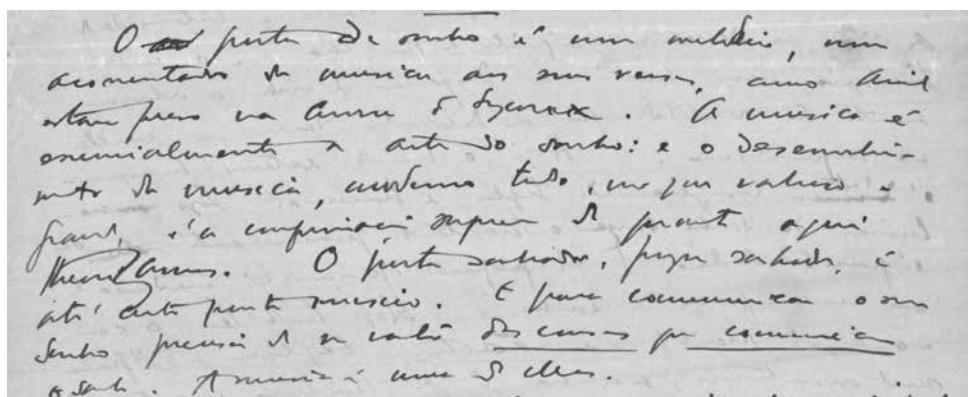 O poeta de sonho é um melodico, um
acorrentador da musica aos seus versos, como Ariel
estava preso na de Sycorax. A musica é
essencialmente a arte do sonho: e o desenvolvi-
mento da musica, moderno todo, no que valioso e
grande, é a suprema de quanto aqui
. O poeta sonhador, porque sonhador, é
até certo ponto musico. E para communicar o seu
sonho precisa de se valer das cousas que communicam
o sonho. A musica é uma d'ellas.